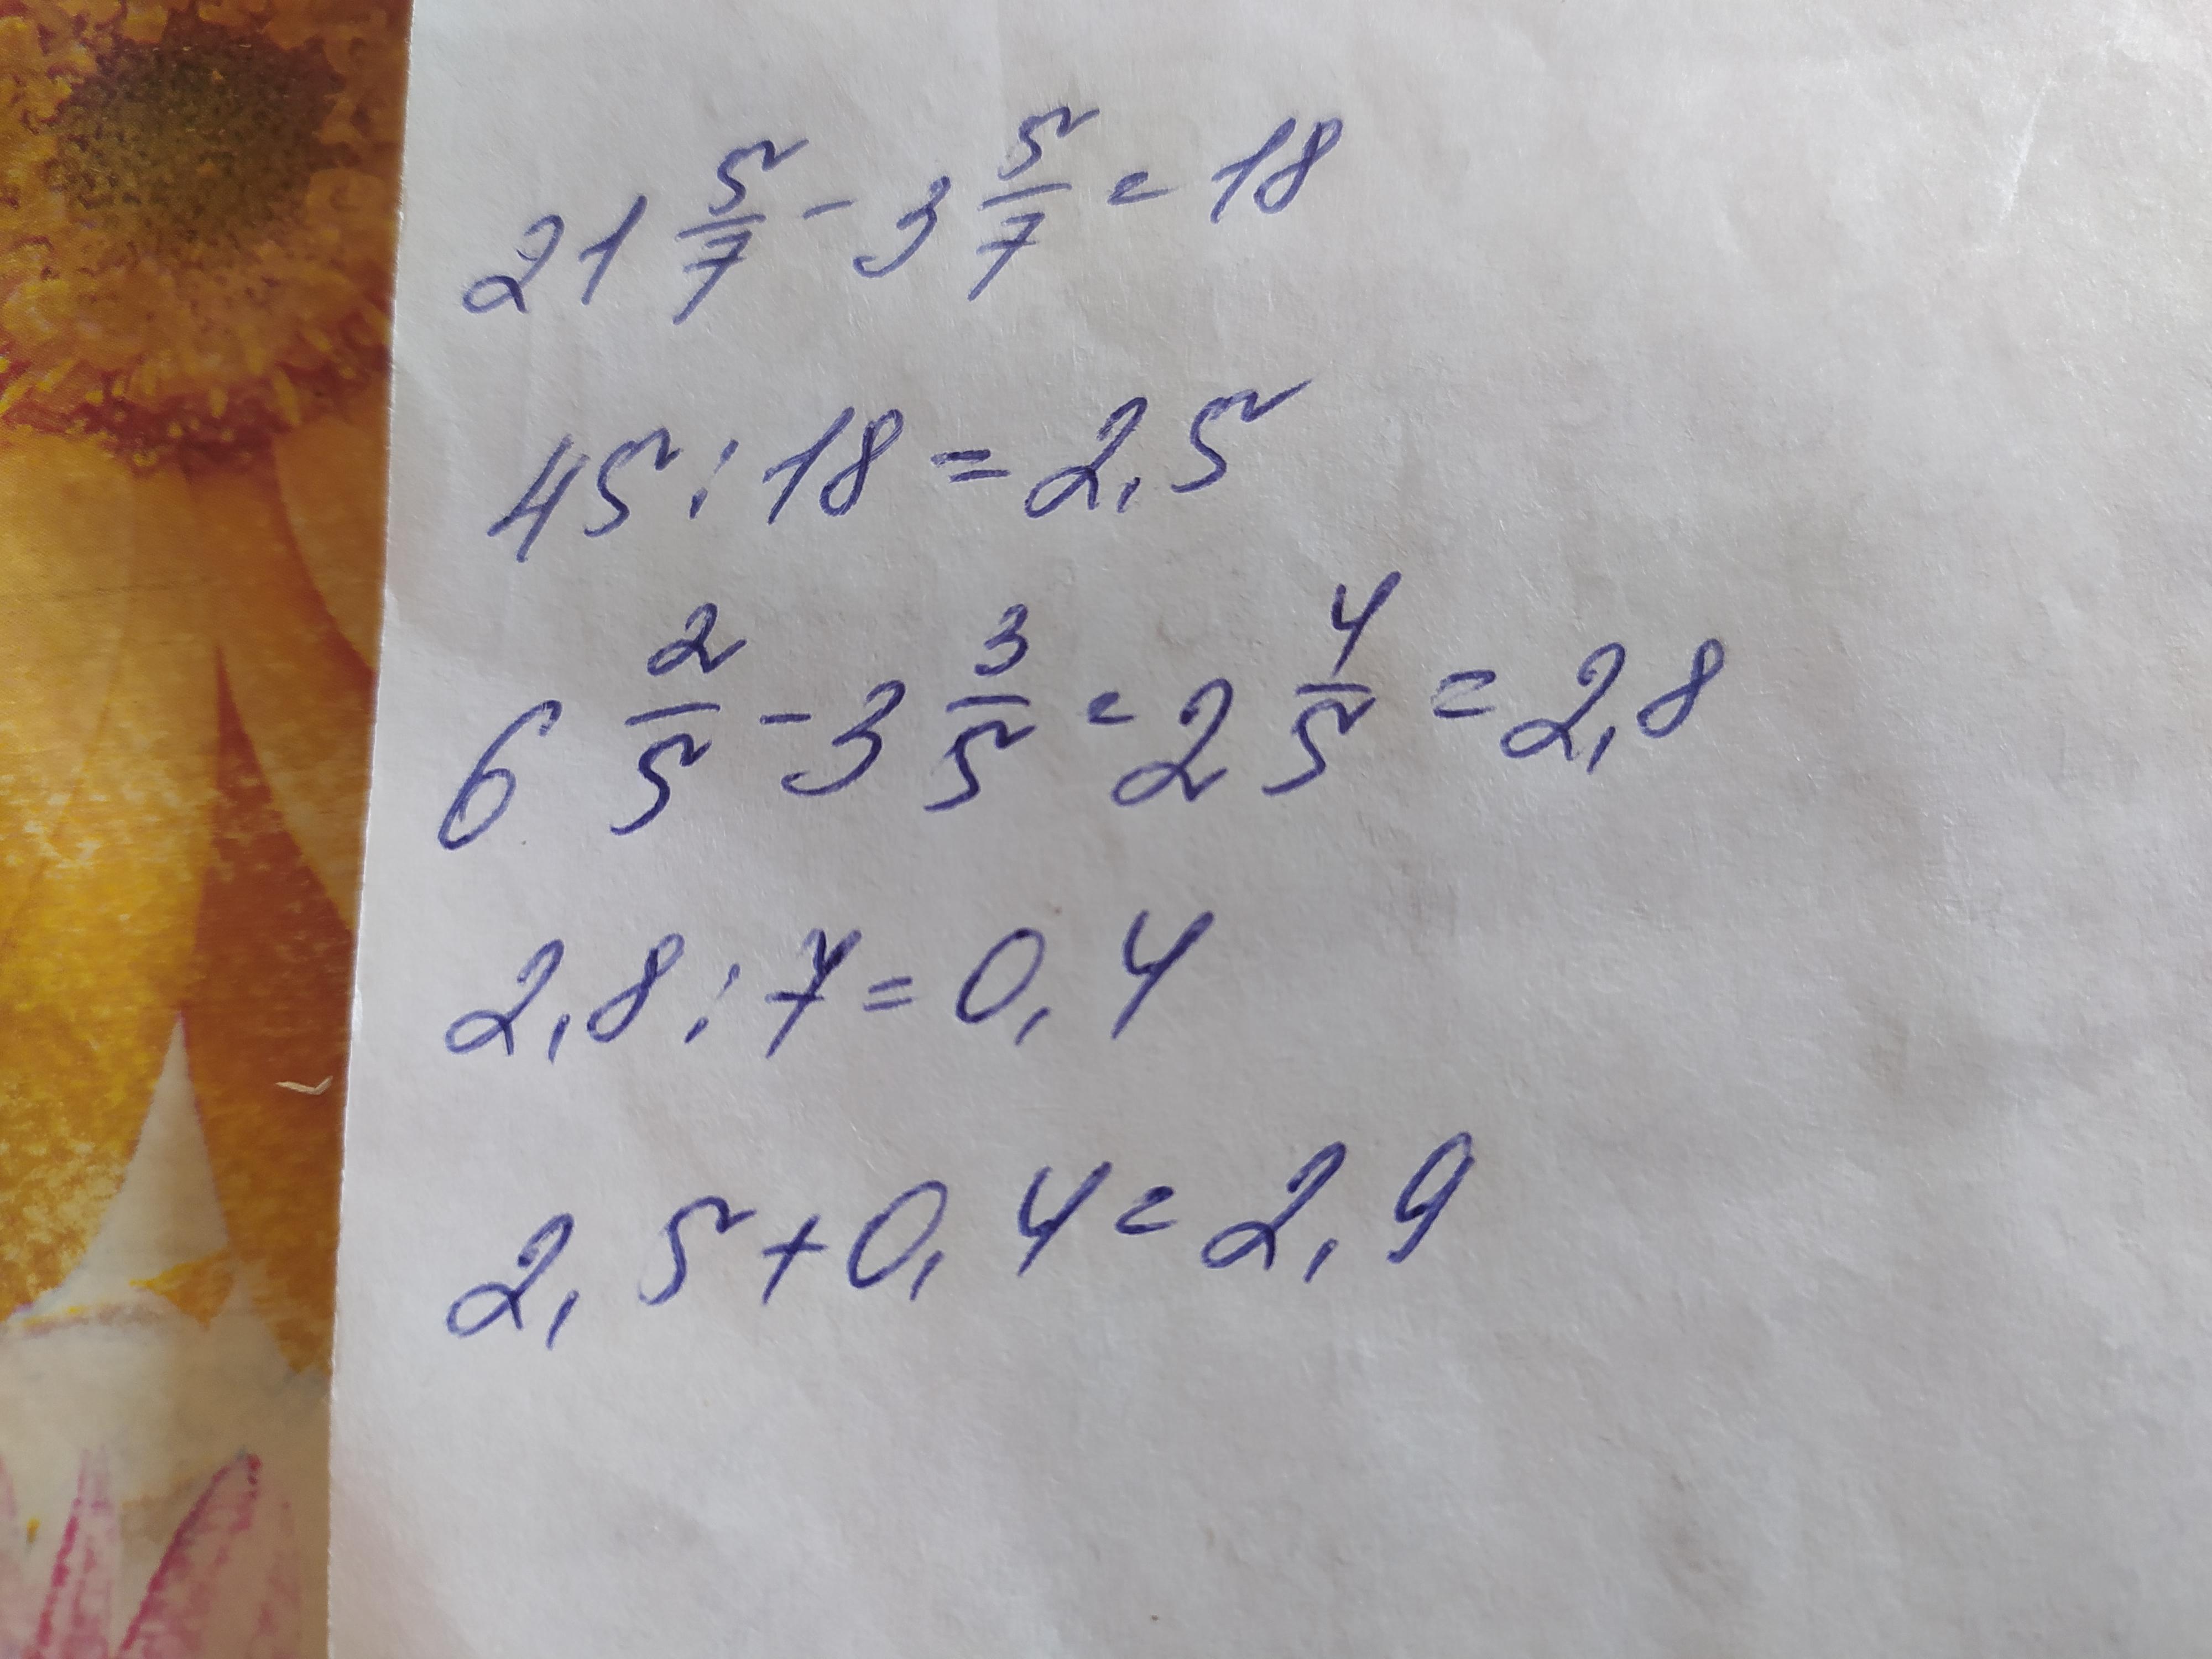 21 5/7 - 3 5/7 = 18
45 : 18 = 2,5
6 2/5 - 3 3/5 = 2 4/5 = 2,8
2,8 : 7 = 0,4
2,5 + 0,4 = 2,9